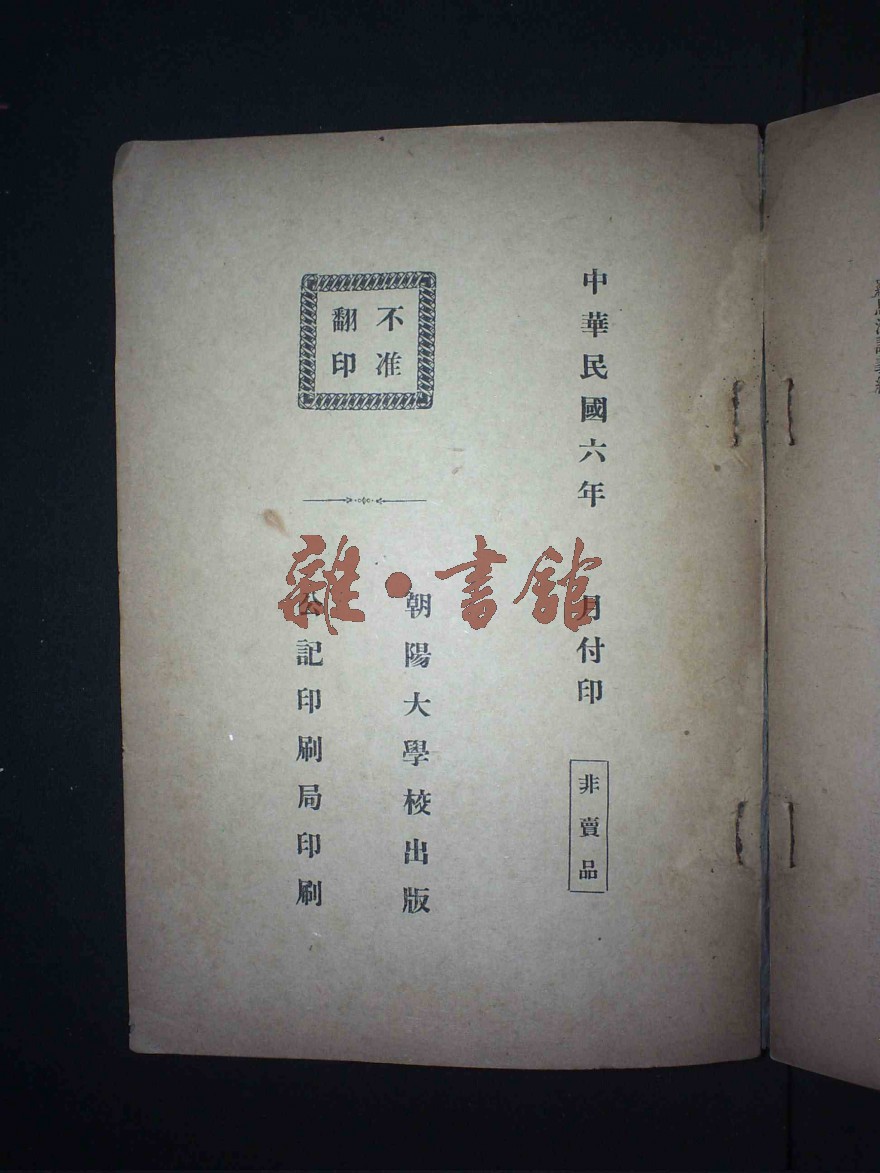 中華民國六年　月付印
非賣品
不准
翻印
朝陽大學校出版
公記印刷局印刷
雜·書館